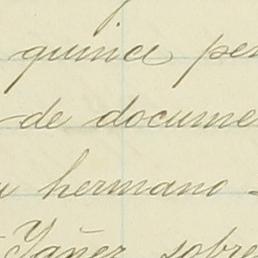 quince pe
de docume
hermano
Yañez sobre